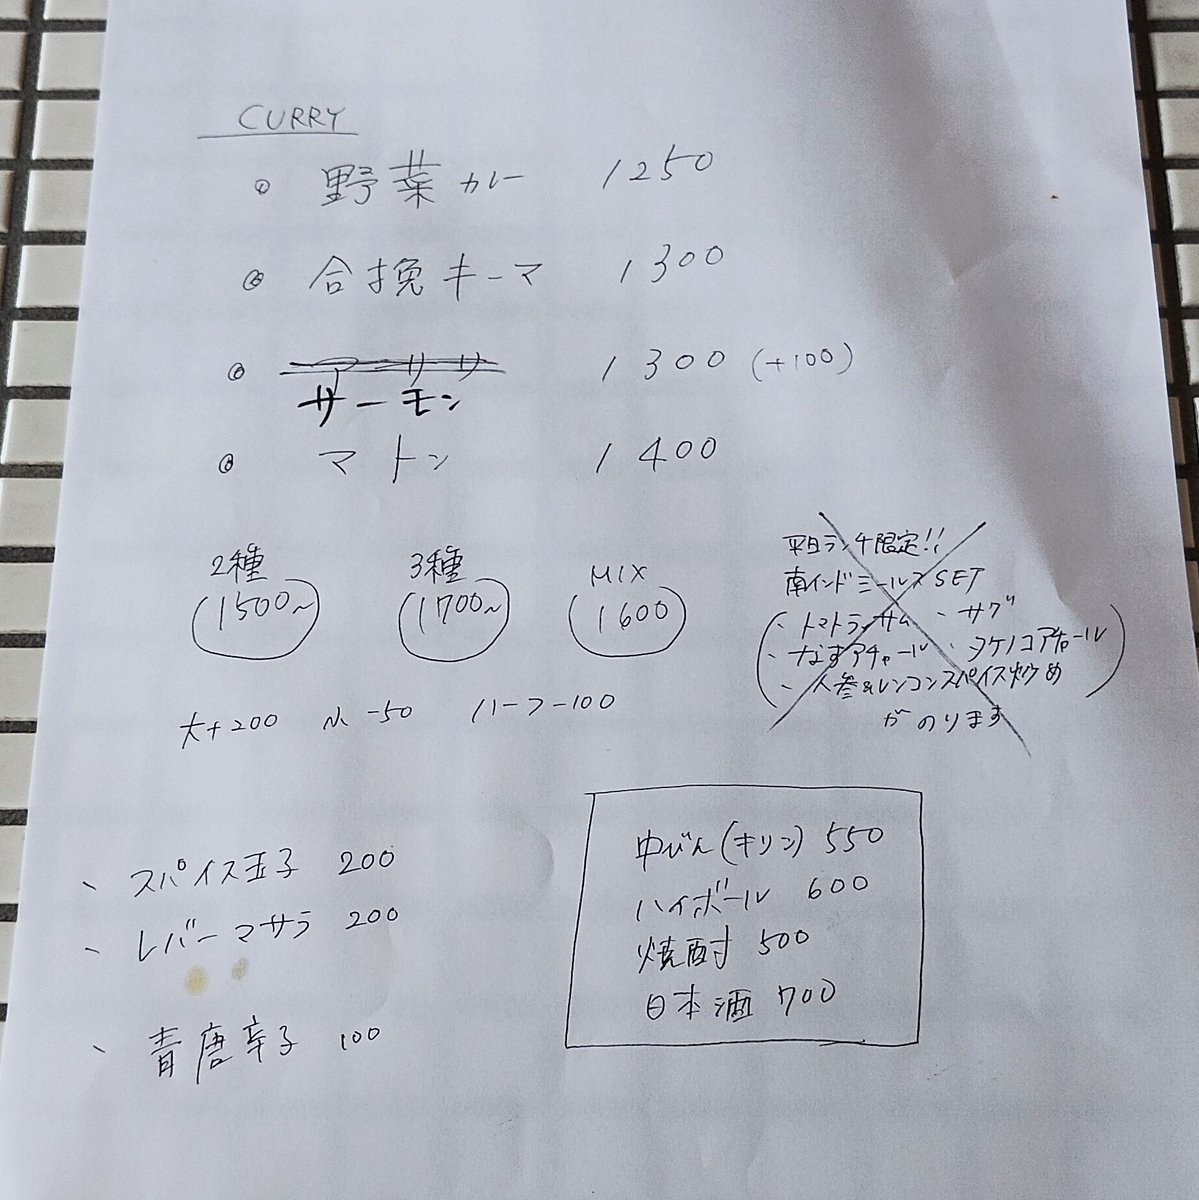 CURRY
野菜カレー 1250
合挽キーマ 1300
1300 (+100)
サーモン
マトン 1400
2種 3種 MIX
1500~ 1700~ 1600
大+200 小-50 ハーフ-100
平日ランチ限定!!
南インドミールスSET
、トマトラッサム 、サグ
、なすアチャール 、タケノコアチャール
、人参&レンコンスパイス炒め
がのります
、スパイス玉子 200
、レバーマサラ 200
、青唐辛子 100
中びん(キリン) 550
ハイボール 600
焼酎 500
日本酒 700